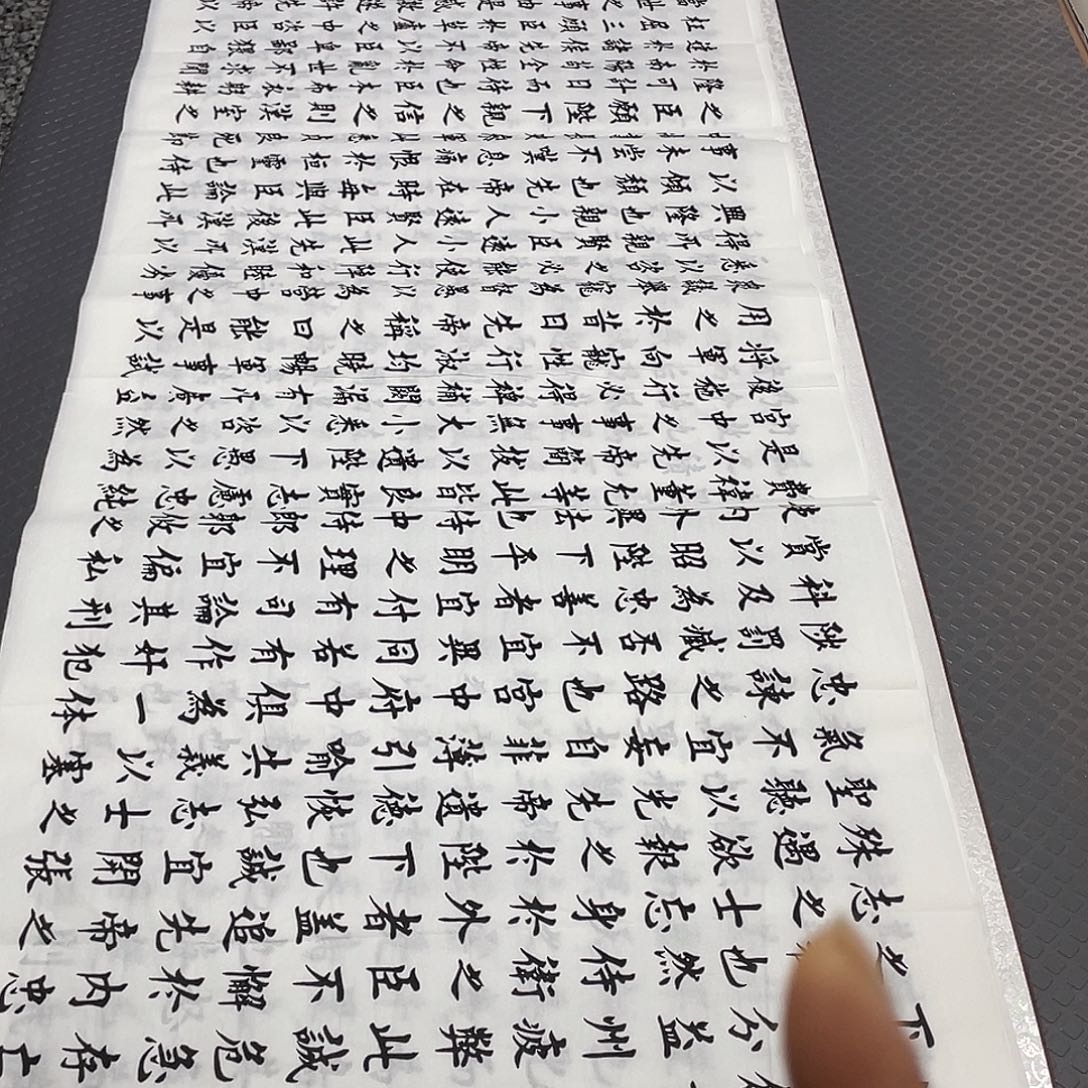 下分益州疲弊此誠危急存亡
之也然侍衛之臣不懈於內忠
志之士忘身於外者蓋追先帝之
殊遇欲報之於陛下也誠宜開張
聖聽以光先帝遺德恢弘志士之
氣不宜妄自菲薄引喻失義以塞
忠諫之路也宮中府中俱為一体
陟罰臧否不宜異同若有作奸犯
科及為忠善者宜付有司論其刑
賞以昭陛下平明之理不宜偏私
使內外異法也侍中侍郎郭攸之
費禕董允等此皆良實志慮忠純
是以先帝簡拔以遺陛下愚以為
宮中之事事無大小悉以咨之然
後施行必得裨補闕漏有所廣益
將軍向寵性行淑均曉暢軍事試
用之於昔日先帝稱之曰能是以
眾議舉寵為督愚以為營中之事
悉以咨之必能使行陣和睦優劣
得所親賢臣遠小人此先漢所以
興隆也親小人遠賢臣此後漢所
以傾頹也先帝在時每與臣論此
事未嘗不嘆息痛恨於桓靈也侍
之臣願陛下親之信之則漢室之
隆可計日而待也臣本布衣躬耕
於南陽苟全性命於亂世不求聞